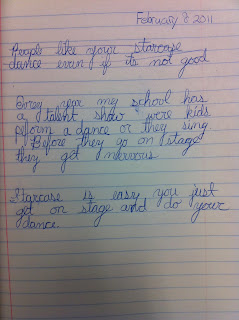 February 8 2011
People like your starcase
dance even if it's not good
Every year my school has
a talent show were kids
pform a dance or they sing
Before they go on stage
they get nhervous
Starcase is easy you just
get on stage and do your
dance.